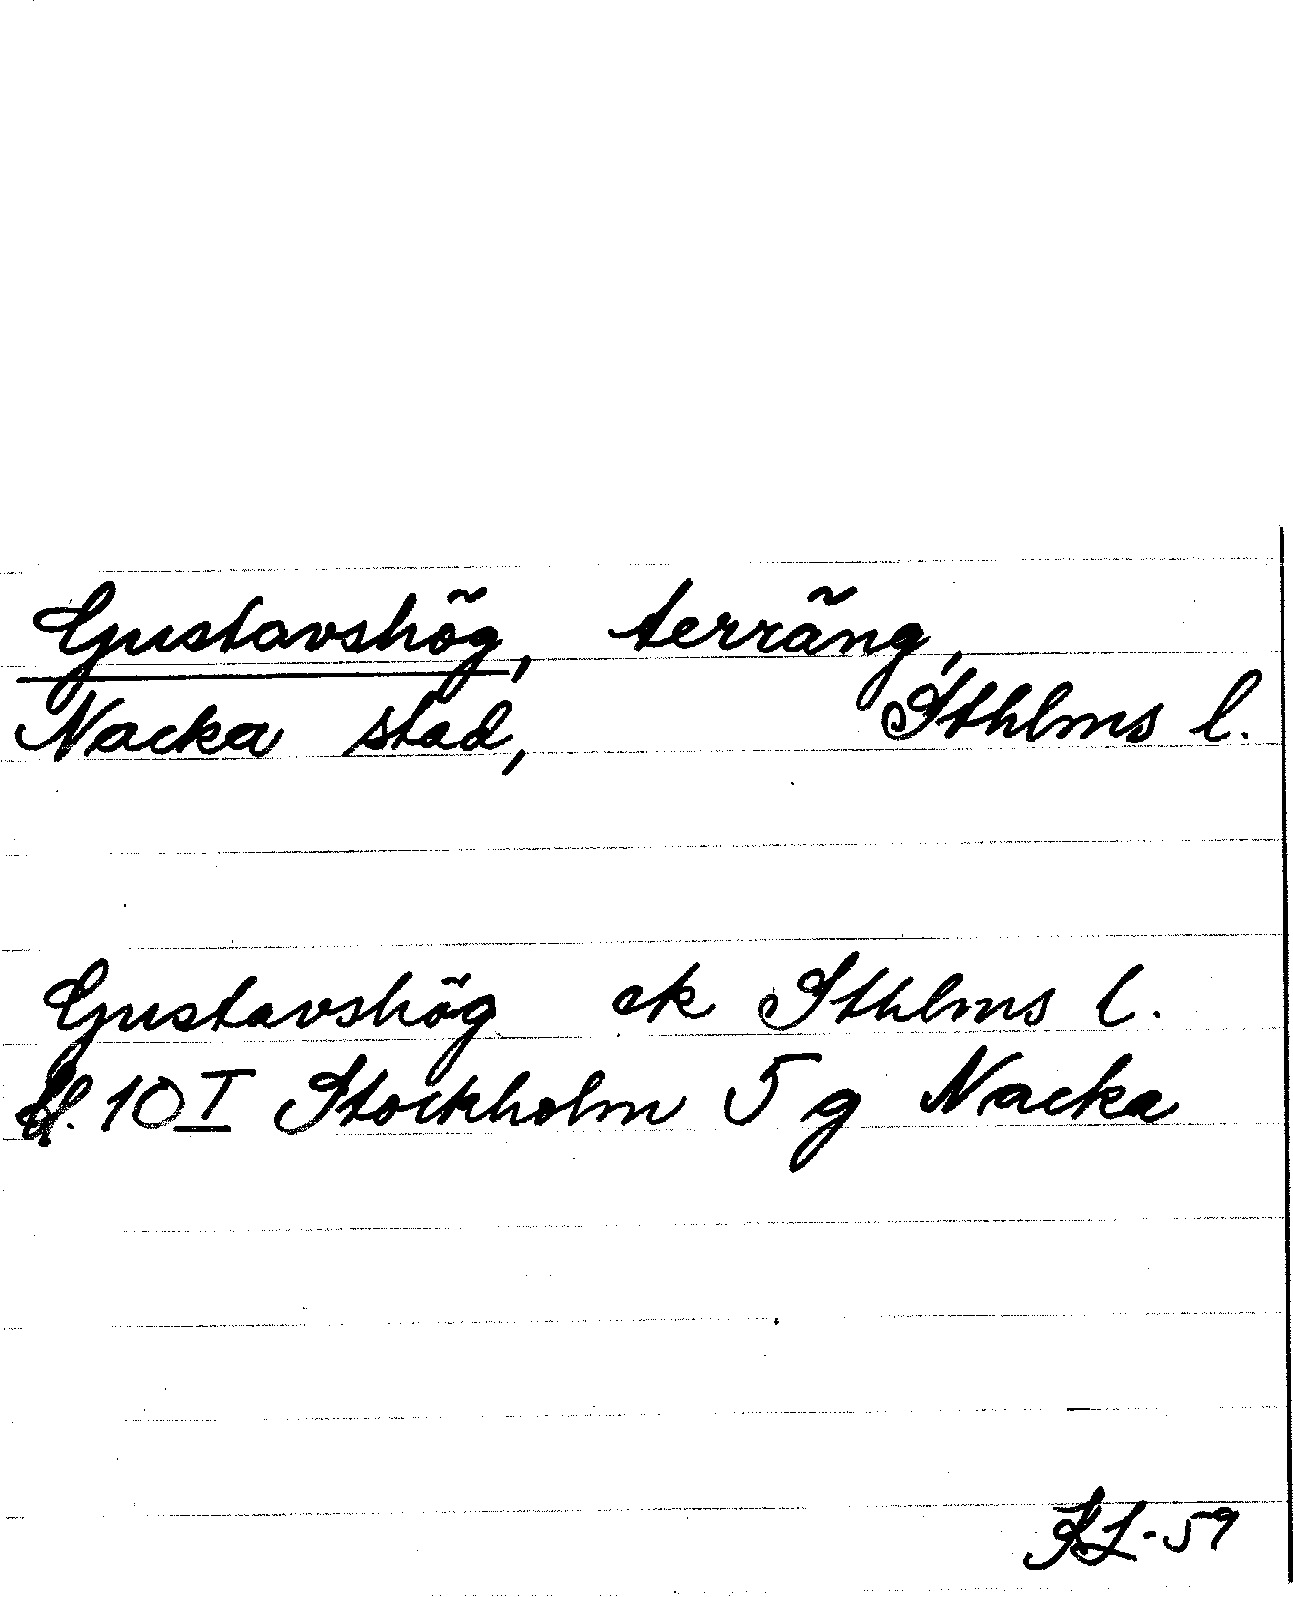 Gustavshög, terräng,
Nacka stad, Sthlms l.
Gustavshög ek Sthlms l.
bl. 10 I Stockholm 5 g Nacka
KL-59